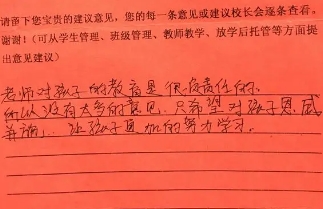 请留下您宝贵的建议意见，您的每一条意见或建议校长会逐条查看。
谢谢！(可从学生管理、班级管理、教师教学、放学后托管等方面提
出意见建议)
老师对孩子的教育是很负责任的.
所以没有太多的意见.只希望对孩子恩.威
并施，让孩子更加的努力学习.